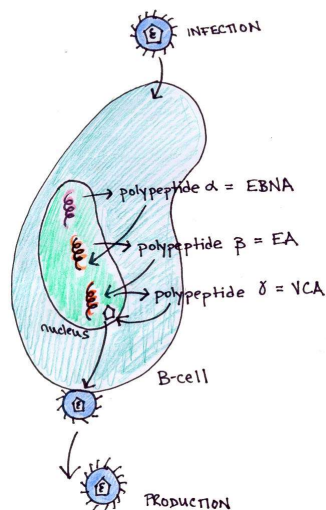 ε
INFECTION
polypeptide α = EBNA
polypeptide β = EA
polypeptide γ = VCA
nucleus
B-cell
ε
ε
PRODUCTION